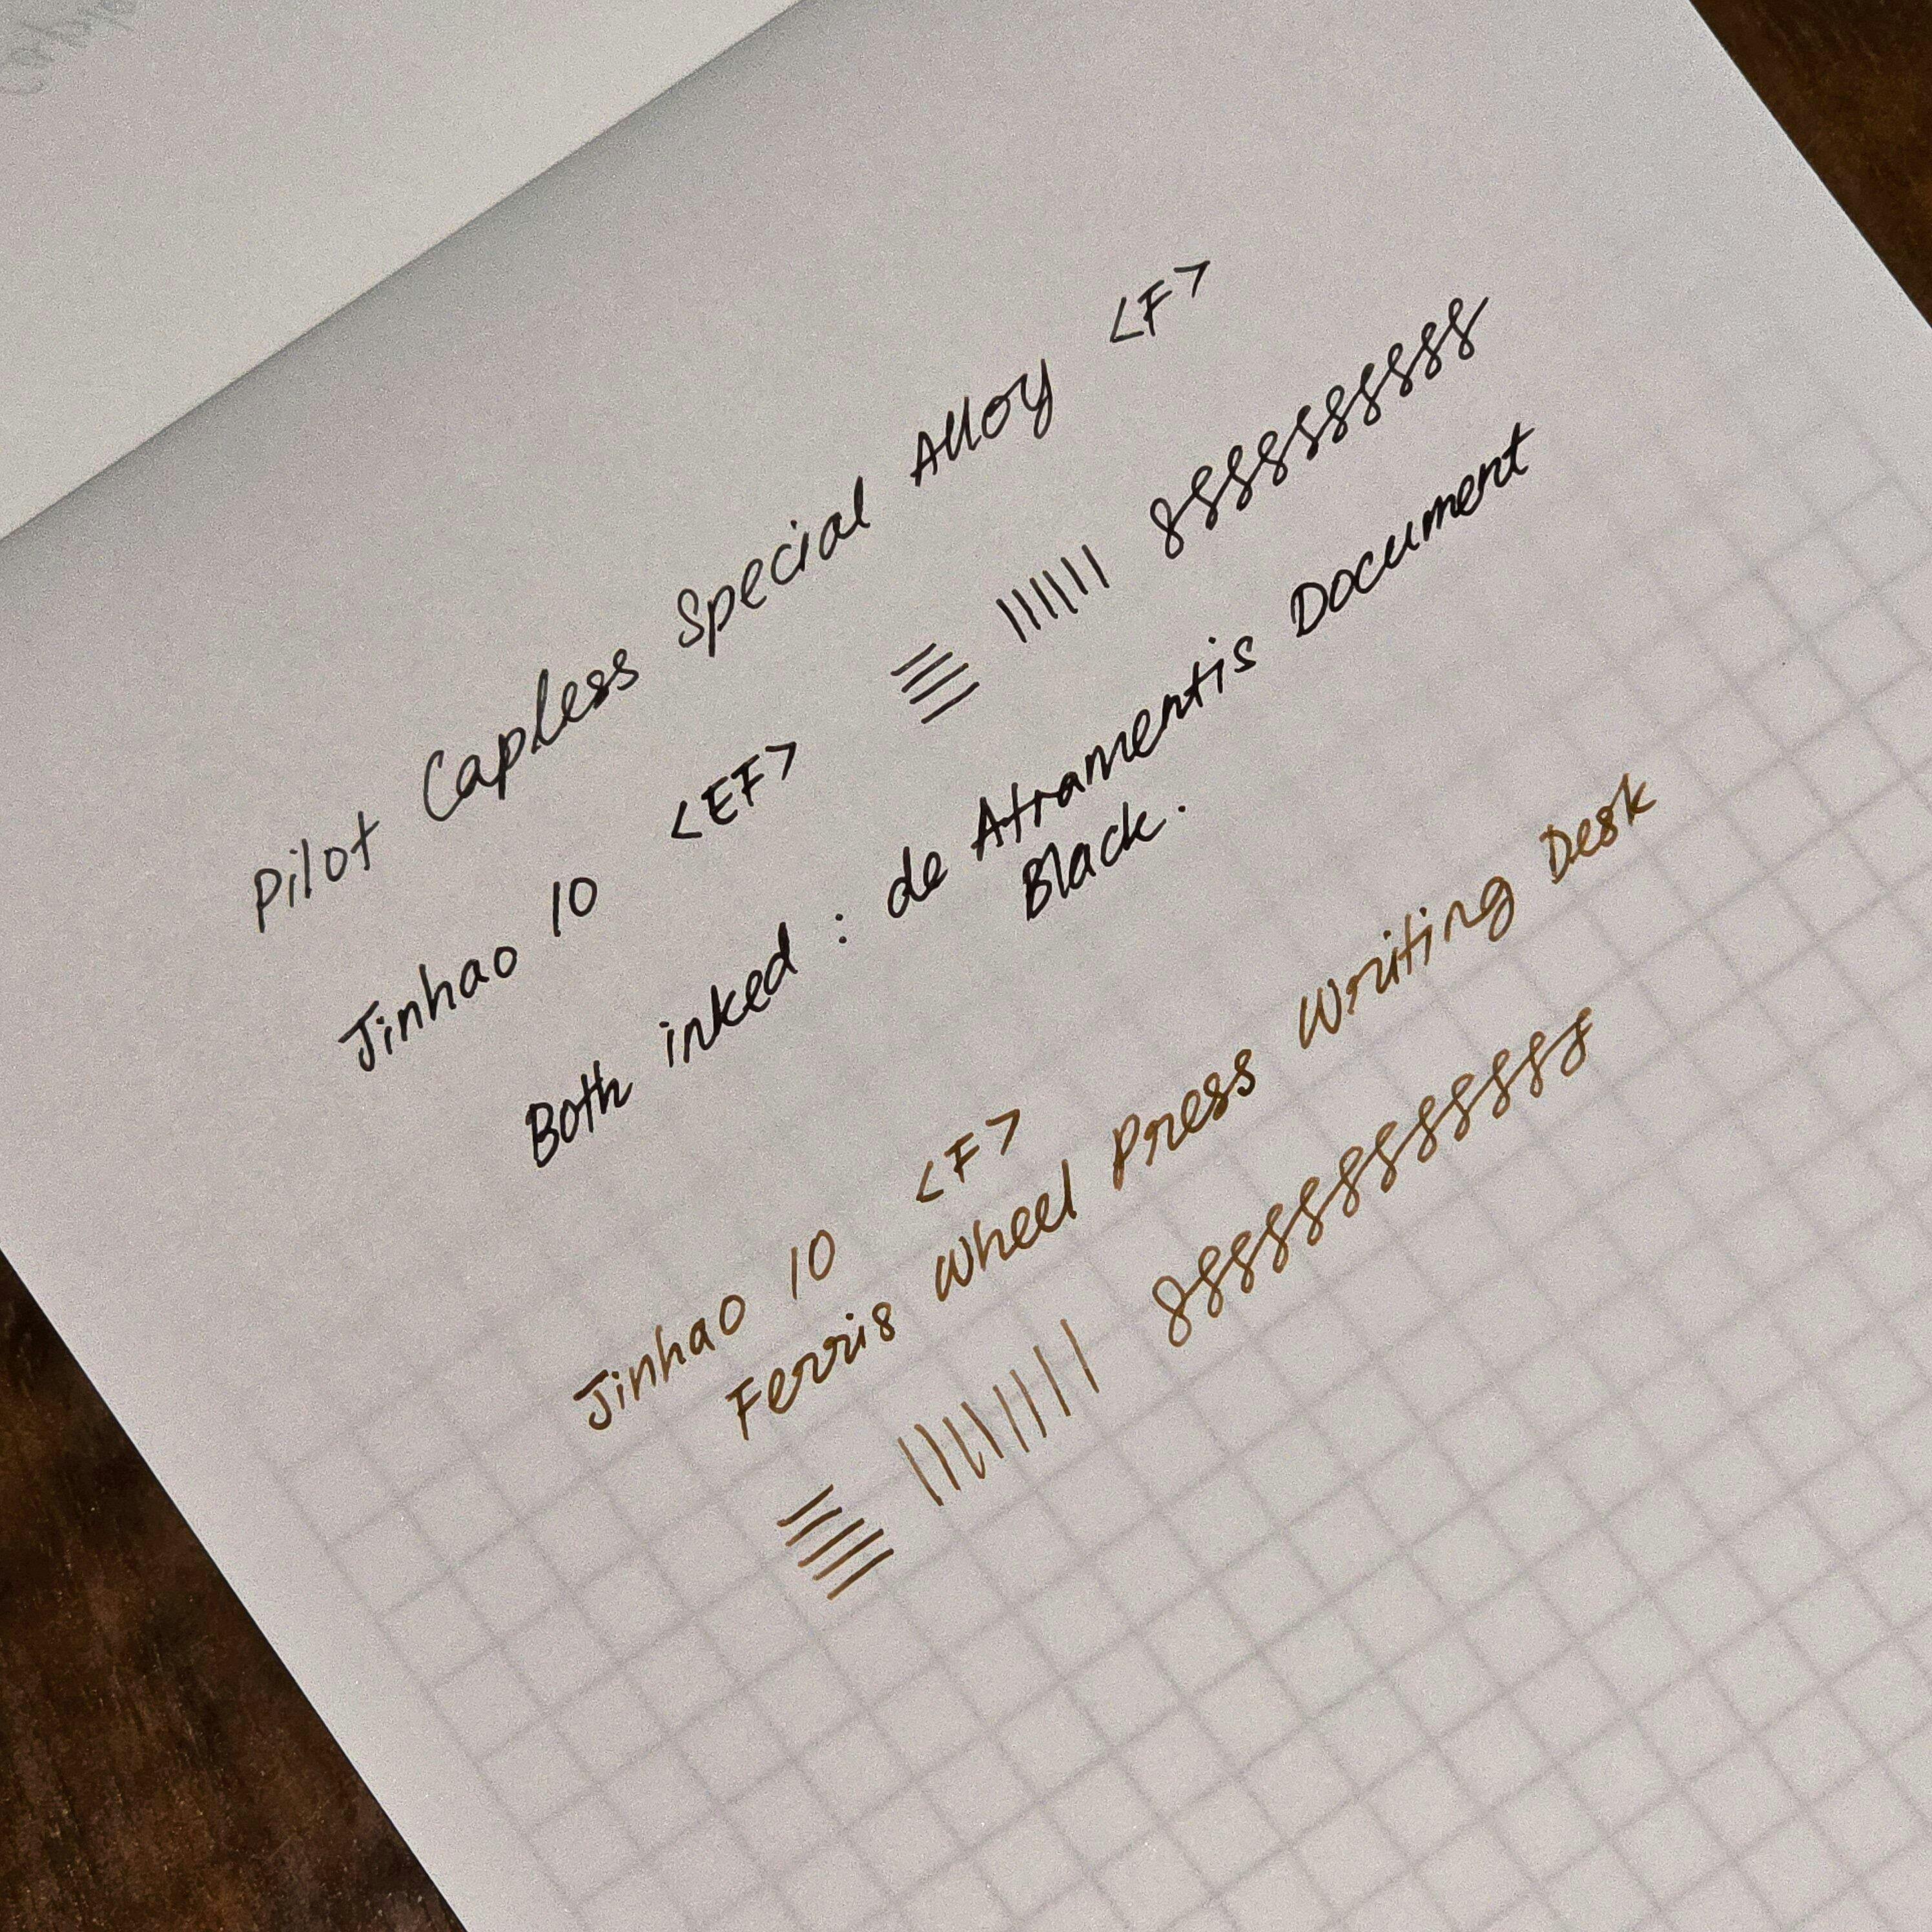 Pilot Capless Special Alloy <F>
Jinhao 10 <EF>
Both inked : de Atramentis Document
Black.
Jinhao 10 <F>
Ferris Wheel Press Writing Desk